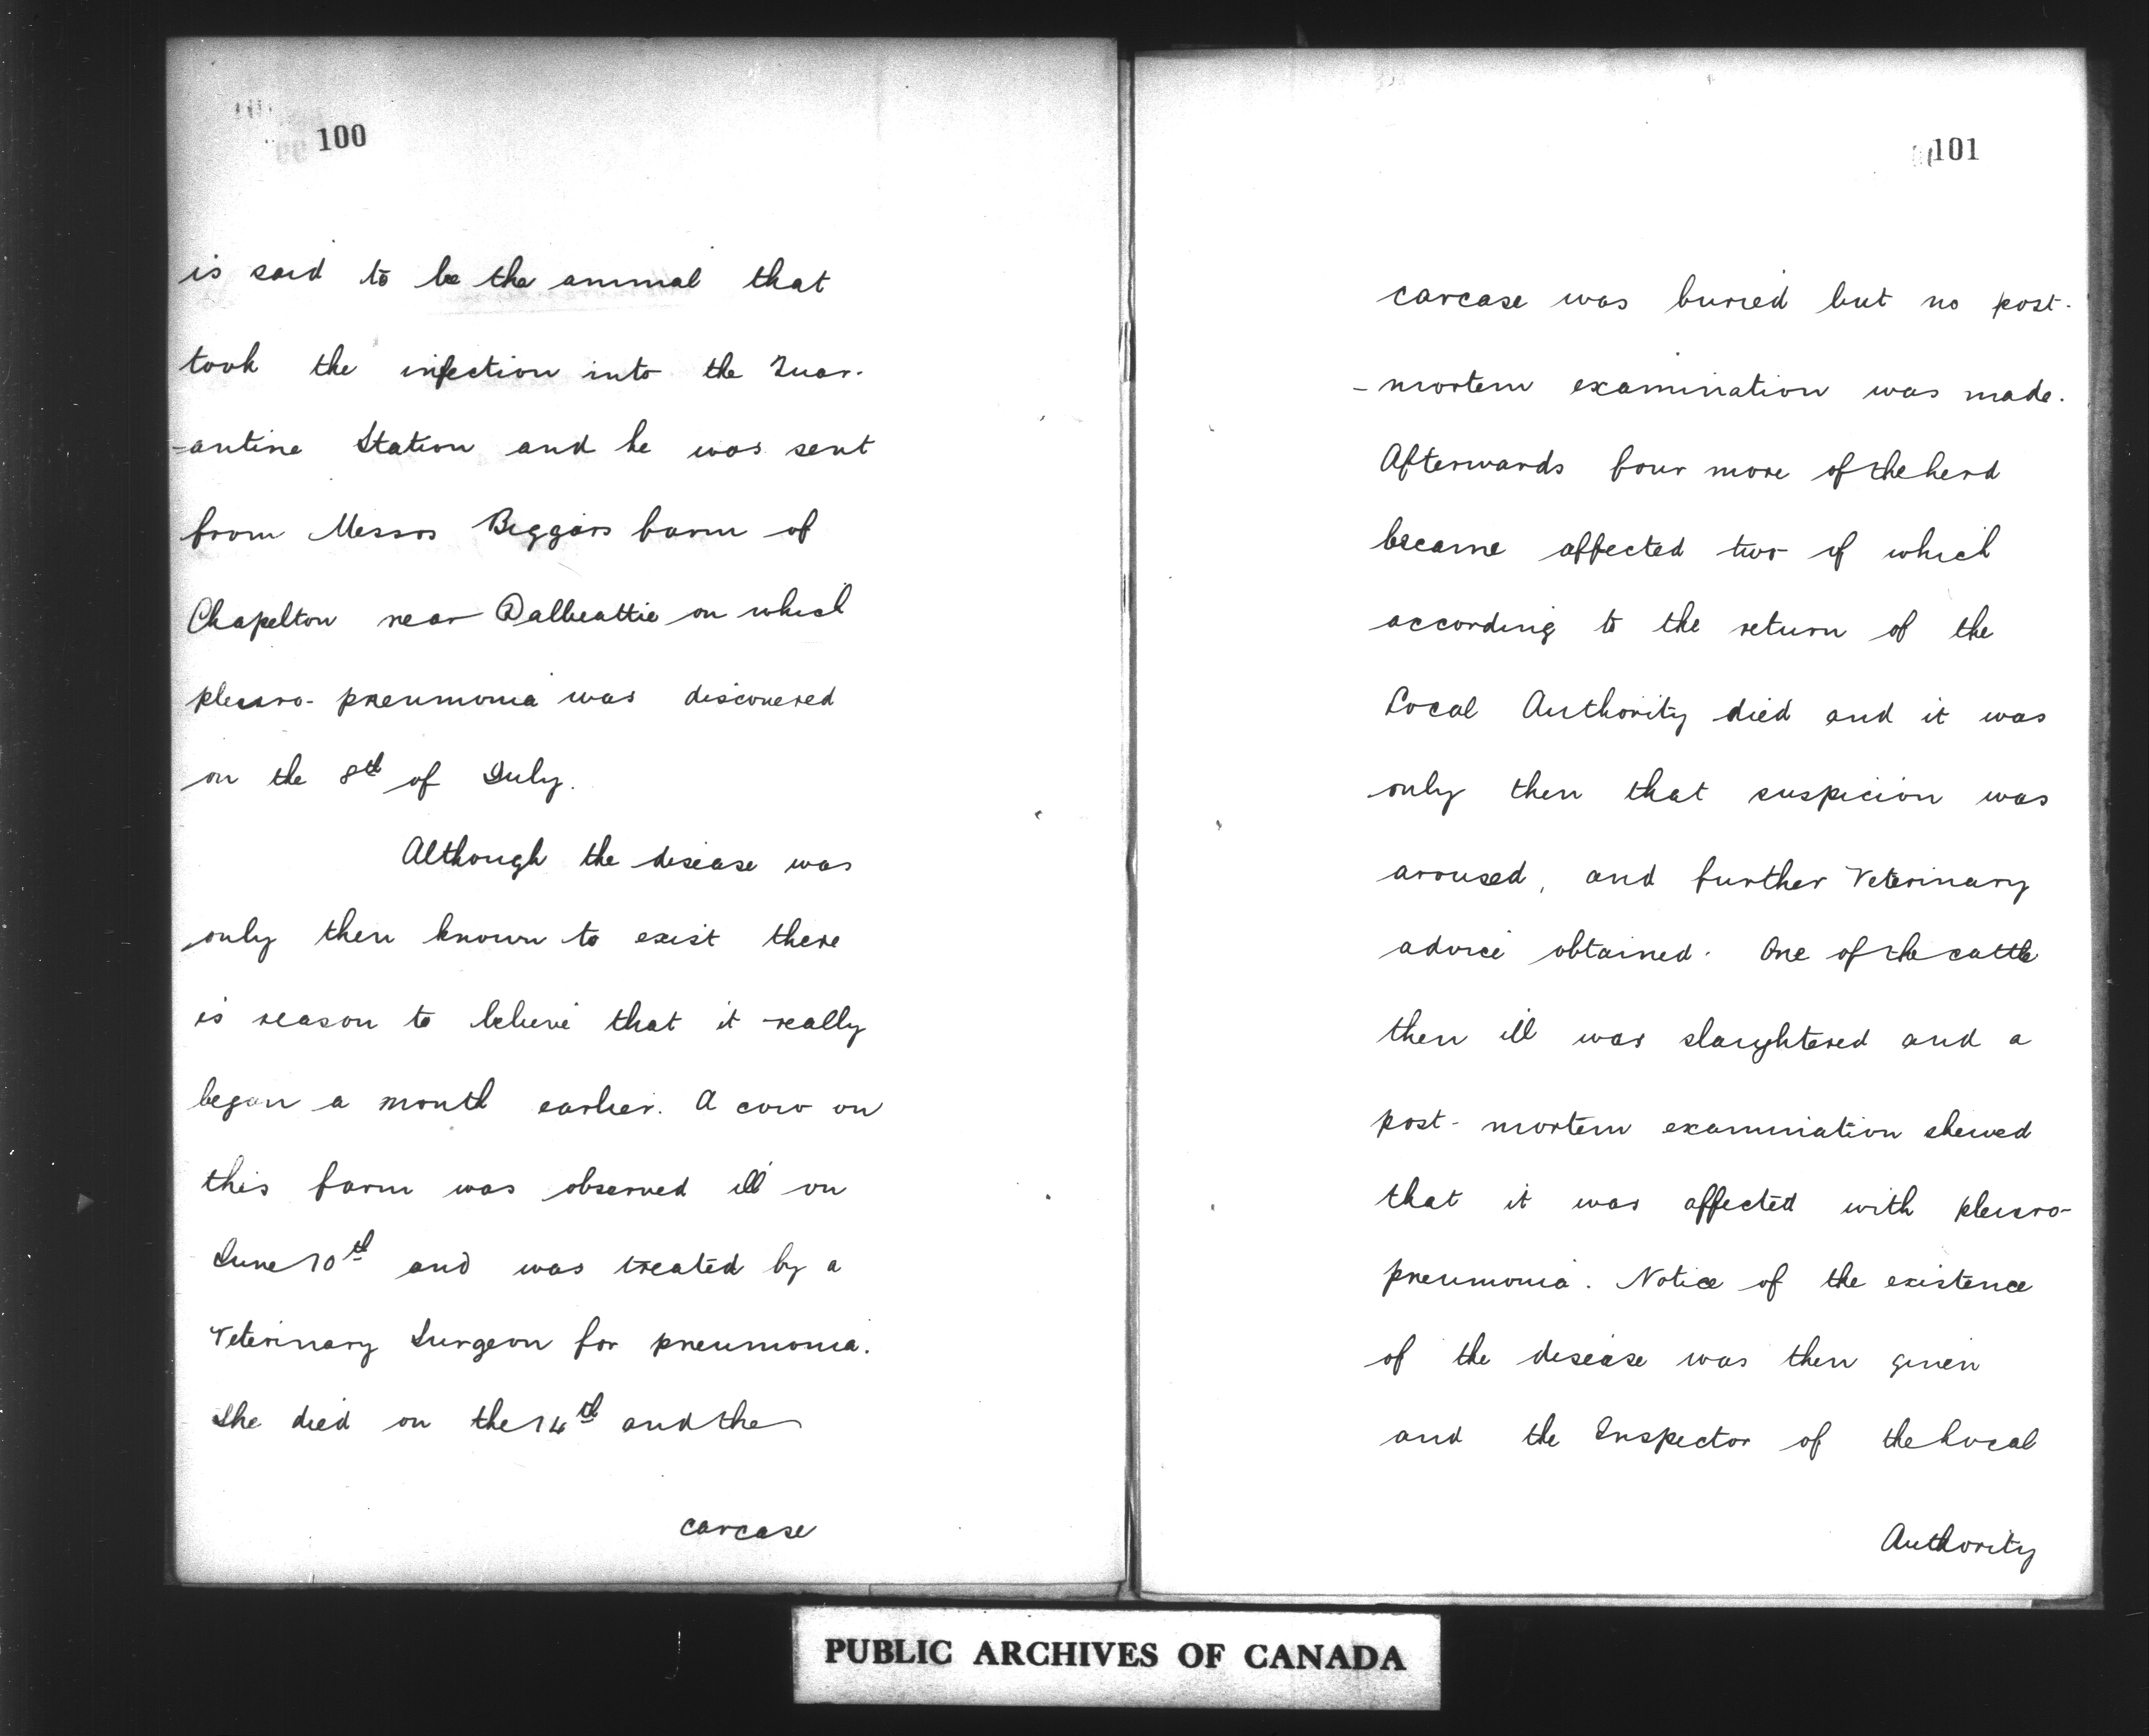 100
is said to be the animal that
took the infection into the Quar-
=antine Station and he was sent
from Messrs Biggars farm of
Chapelton near Dalbeattie on which
pleuro-pneumonia was discovered
on the 8th of July.
Although the disease was
only then known to exist there
is reason to believe that it really
began a month earlier. A cow on
this farm was observed ill on
June 10th and was treated by a
Veterinary Surgeon for pneumonia.
She died on the 14th and the
carcase
101
carcase was buried but no post-
-mortem examination was made.
Afterwards four more of the herd
became affected two of which
according to the return of the
Local Authority died and it was
only then that suspicion was
aroused, and further Veterinary
advice obtained. One of the cattle
then ill was slaughtered and a
post-mortem examination shewed
that it was affected with pleuro-
pneumonia. Notice of the existence
of the disease was then given
and the Inspector of the Local
Authority
PUBLIC ARCHIVES OF CANADA